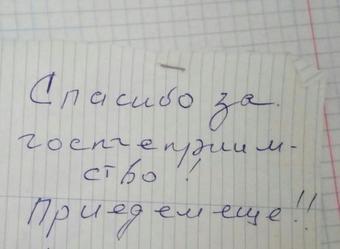 Спасибо за
гостеприим-
ство!!
Приедем еще!!